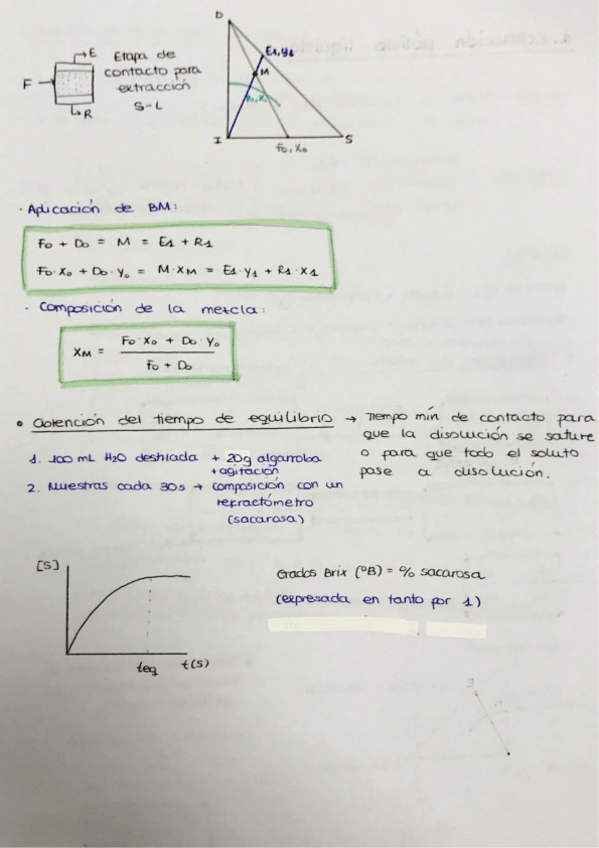 E
F
R
Etapa de
contacto para
extracción
S-L
D
E1, y1
M
R1, X1
I
S
fo, Xo
· Aplicación de BM:
Fo + Do = M = E1 + R1
Fo·Xo + Do·Yo = M·XM = E1·y1 + R1·X1
· Composición de la mezcla:
XM = Fo·Xo + Do·Yo
Fo + Do
• Obtención del tiempo de equilibrio → Tiempo mín de contacto para
que la disolución se sature
o para que todo el soluto
pase a disolución.
1. 100 mL H2O destilada + 20g algarroba
+ agitación
2. Muestras cada 30s → composición con un
refractómetro
(sacarosa)
[S]
teq
t(s)
Grados Brix (ºB) = % sacarosa
(expresada en tanto por 1)